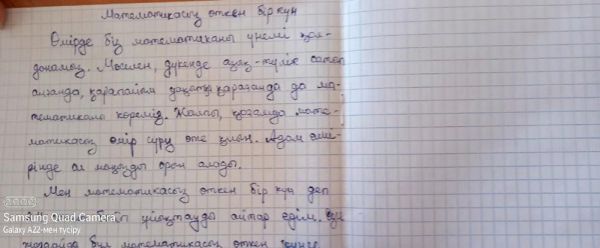 Математикасыз өткен бір күн
Өмірде біз математиканы үнемі қол-
данамыз. Мәселен, дүкенде азық-түлік сатып
алғанда, қарапайым уақытқа қарағанда да ма-
тематиканы көреміз. Жалпы, қоғамда мате-
матикасыз өмір сүру өте қиын. Адам өмі-
рінде ол маңызды орын алады.
Мен математикасыз өткен бір күн деп
ұйықтауды айтар едім.
жағдайда бұл математикасыз өткен
Samsung Quad Camera
Galaxy A22-мен түсіру